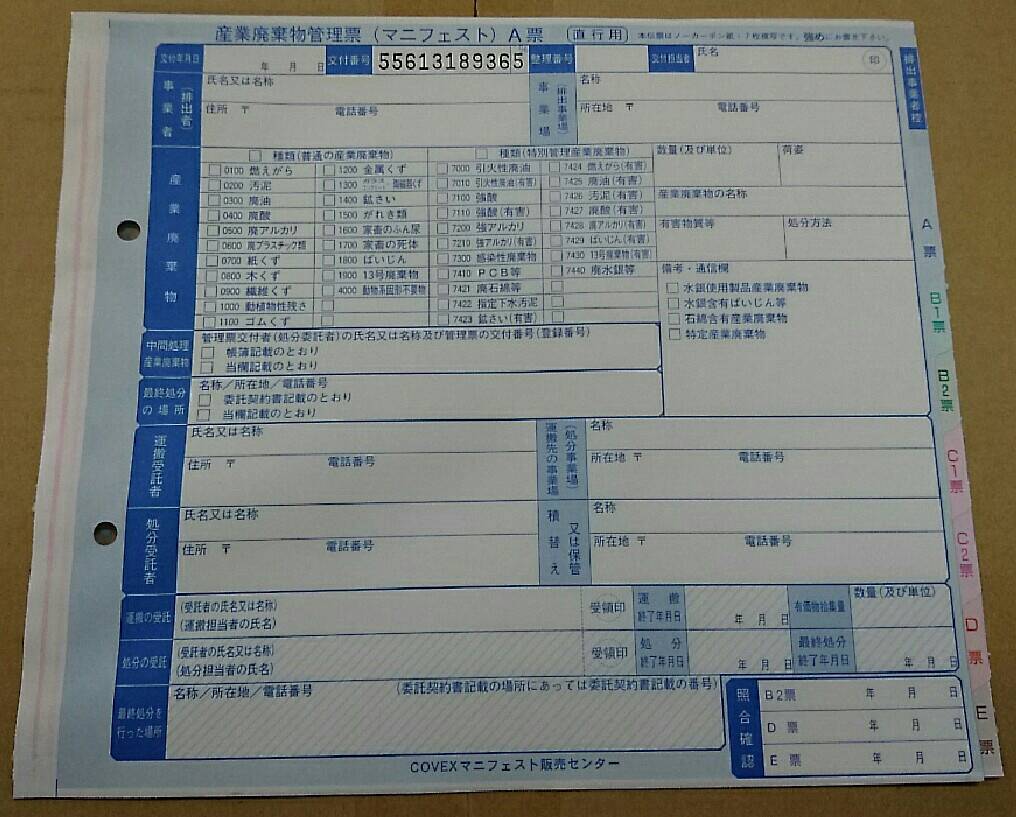 産業廃棄物管理票（マニフェスト）A票 （直行用） 本伝票はノーカーボン紙・7枚複写です。強めにお書き下さい。
交付年月日 年 月 日 交付番号 55613189365 整理番号 交付担当者 氏名 印
排出事業者控
事業者（排出者） 氏名又は名称
住所 〒 電話番号
事業場（排出事業場） 名称
所在地 〒 電話番号
産業廃棄物
種類（普通の産業廃棄物） 種類（特別管理産業廃棄物） 数量（及び単位） 荷姿
0100 燃えがら 1200 金属くず 7000 引火性廃油 7424 燃えがら（有害）
0200 汚泥 1300 ガラス・コンクリート・陶磁器くず 7010 引火性廃油（有害） 7425 廃油（有害）
0300 廃油 1400 鉱さい 7100 強酸 7426 汚泥（有害） 産業廃棄物の名称
0400 廃酸 1500 がれき類 7110 強酸（有害） 7427 廃酸（有害）
0500 廃アルカリ 1600 家畜のふん尿 7200 強アルカリ 7428 廃アルカリ（有害） 有害物質等 処分方法
0600 廃プラスチック類 1700 家畜の死体 7210 強アルカリ（有害） 7429 ばいじん（有害）
0700 紙くず 1800 ばいじん 7300 感染性廃棄物 7430 13号廃棄物（有害）
0800 木くず 1900 13号廃棄物 7410 PCB等 7440 廃水銀等 備考・通信欄
0900 繊維くず 4000 動物系固形不要物 7421 廃石綿等 水銀使用製品産業廃棄物
1000 動植物性残さ 7422 指定下水汚泥 水銀含有ばいじん等
1100 ゴムくず 7423 鉱さい（有害） 石綿含有産業廃棄物
特定産業廃棄物
中間処理産業廃棄物 管理票交付者（処分委託者）の氏名又は名称及び管理票の交付番号（登録番号）
帳簿記載のとおり
当欄記載のとおり
最終処分の場所 名称／所在地／電話番号
委託契約書記載のとおり
当欄記載のとおり
運搬受託者 氏名又は名称
住所 〒 電話番号
運搬先の事業場（処分事業場） 名称
所在地 〒 電話番号
処分受託者 氏名又は名称
住所 〒 電話番号
積替え又は保管 名称
所在地 〒 電話番号
運搬の受託 （受託者の氏名又は名称） 受領印 運搬終了年月日 年 月 日 有価物拾集量 数量（及び単位）
（運搬担当者の氏名）
処分の受託 （受託者の氏名又は名称） 受領印 処分終了年月日 年 月 日 最終処分終了年月日 年 月 日
（処分担当者の氏名）
最終処分を行った場所 名称／所在地／電話番号 （委託契約書記載の場所にあっては委託契約書記載の番号）
照合確認 B2票 年 月 日
D 票 年 月 日
E 票 年 月 日
COVEXマニフェスト販売センター
A票
B1票
B2票
C1票
C2票
D票
E票